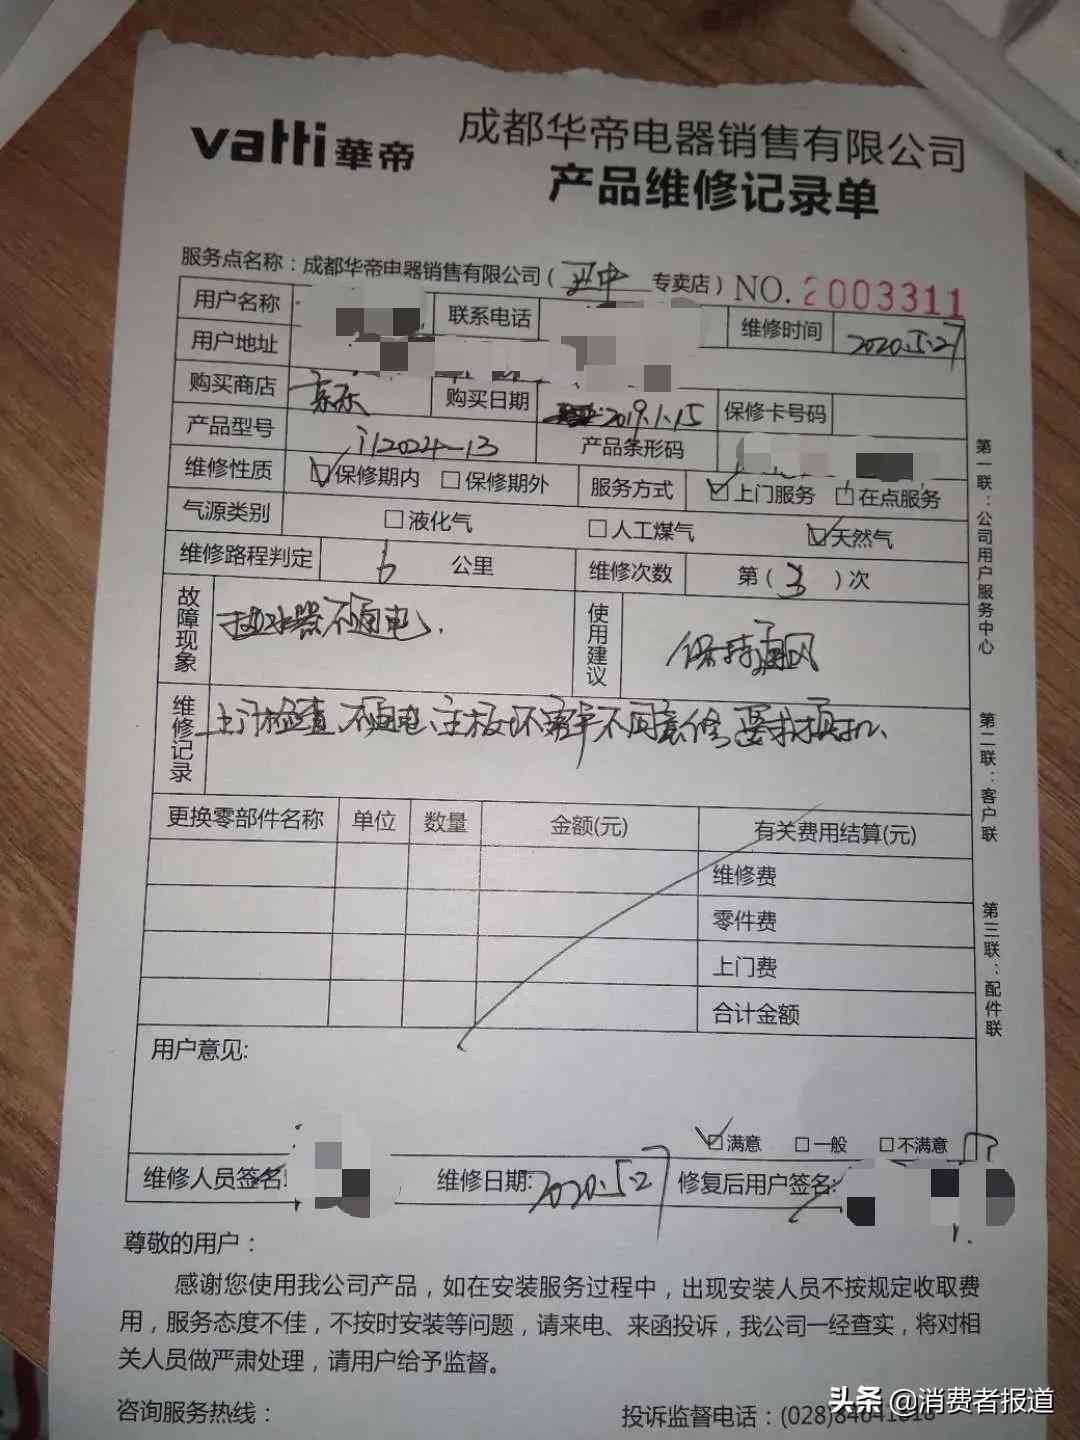 vatti 華帝
成都华帝电器销售有限公司
产品维修记录单
服务点名称：成都华帝电器销售有限公司（ 专卖店）NO. 2003311
用户名称 联系电话 维修时间 2020.5.27
用户地址
购买商店 京东 购买日期 2019.1.15 保修卡号码
产品型号 i12024-13 产品条形码
维修性质 保修期内 保修期外 服务方式 上门服务 在点服务
气源类别 液化气 人工煤气 天然气
维修路程判定 6 公里 维修次数 第（3）次
故障现象 热水器不通电. 使用建议 保持通风
维修记录 上门检查 不通电、主板坏 客户不同意修,要求换机、
更换零部件名称 单位 数量 金额(元) 有关费用结算(元)
维修费
零件费
上门费
合计金额
用户意见:
满意 一般 不满意
维修人员签名: 维修日期: 2020.5.27 修复后用户签名:
第一联：公司用户服务中心
第二联：客户联
第三联：配件联
尊敬的用户：
感谢您使用我公司产品，如在安装服务过程中，出现安装人员不按规定收取费
用，服务态度不佳，不按时安装等问题，请来电、来函投诉，我公司一经查实，将对相
关人员做严肃处理，请用户给予监督。
咨询服务热线： 投诉监督电话：(028)84641818
头条 @消费者报道